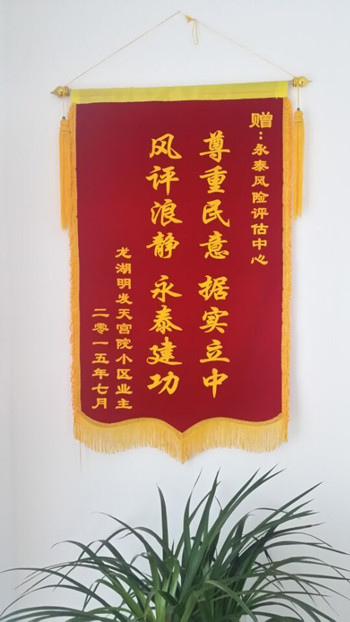 赠：永泰风险评估中心
尊重民意 据实立中
风评浪静 永泰建功
龙湖明发天宫院小区业主
二零一五年七月